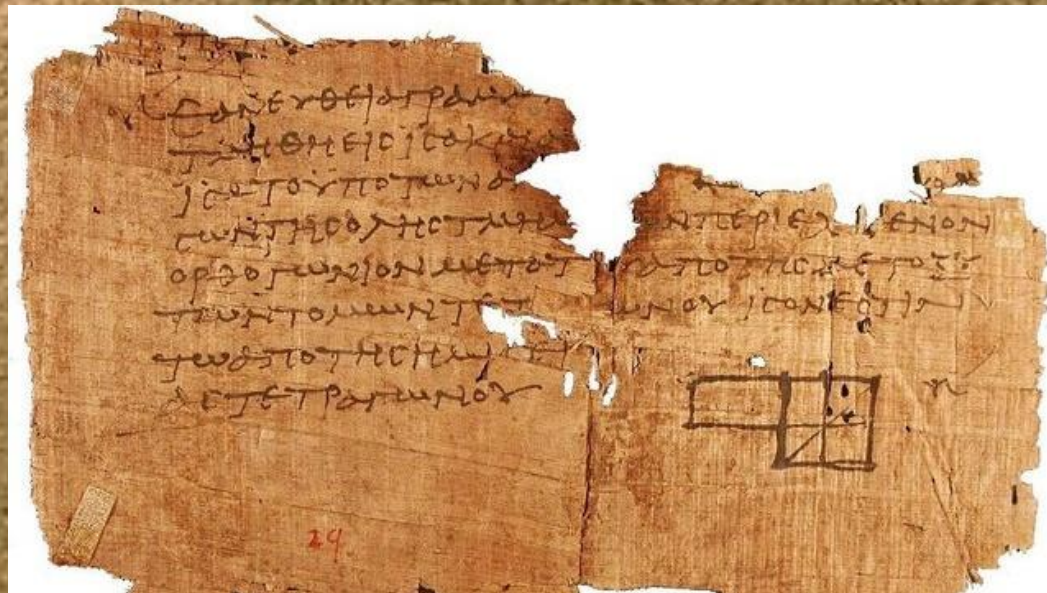 ΕΑΝΕΥΘΕΙΑΓΡΑΜΜ
ΤΜΗΘΗΕΙCΙCΑΚΑΙΑ
ΙCΑΤΟΥΠΟΤΩΝΑΝ
CΩΝΤΗCΟΛΗCΤΜΗΜ ΝΠΕΡΙΕΧ ΜΕΝΟΝ
ΟΡΘΟΓΩΝΙΟΝΜΕΤΟΤ ΑΠΟΤΗCΜΕΤΟΞΥ
ΤΩΝΤΟΜΩΝΤΕΤ ΩΝΟΥΙCΟΝΕCΤΙΝ
ΤΩΑΠΟΤΗCΗΜΙ
ΑCΤΕΤΡΑΓΩΝΟΥ
29